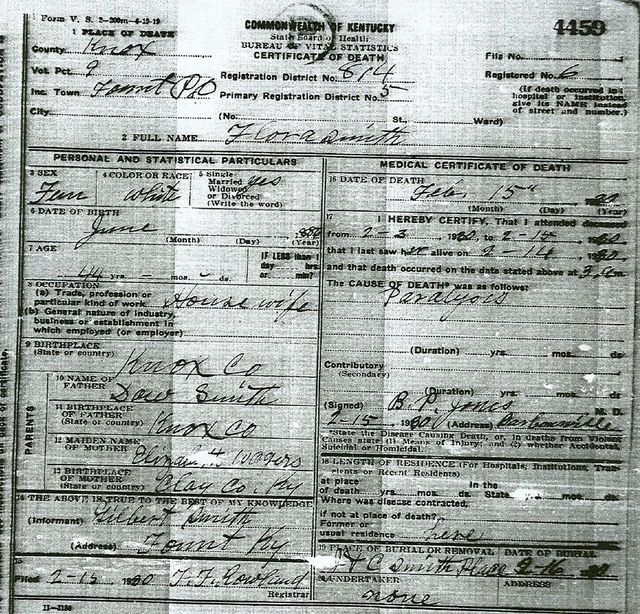 Form V. S. 2-200m-6-12-19
COMMONWEALTH OF KENTUCKY
State Board of Health
BUREAU OF VITAL STATISTICS
CERTIFICATE OF DEATH
4459
1 PLACE OF DEATH
County Knox
Vot. Pct. 9
Inc. Town Fount P.O
City
Registration District No. 814
Primary Registration District No. 5
File No.
Registered No. 6
(If death occurred in hospital or institution, give its NAME instead of street and number.)
(No. St., Ward)
2 FULL NAME Flora Smith
PERSONAL AND STATISTICAL PARTICULARS
3 SEX Fem
4 COLOR OR RACE white
5 Single Married Widowed or Divorced (Write the word) yes
6 DATE OF BIRTH
June
(Month) (Day) (Year)
7 AGE
44 yrs. – mos. – ds.
IF LESS than 1 day hrs. or min.?
8 OCCUPATION
(a) Trade, profession or particular kind of work House wife
(b) General nature of industry, business or establishment in which employed (or employer)
9 BIRTHPLACE
(State or country) Knox Co
PARENTS
10 NAME OF FATHER Daw Smith
11 BIRTHPLACE OF FATHER
(State or country) Knox Co
12 MAIDEN NAME OF MOTHER
13 BIRTHPLACE OF MOTHER
(State or country) Clay Co Ky
14 THE ABOVE IS TRUE TO THE BEST OF MY KNOWLEDGE
(Informant) Gilbert Smith
(Address) Fount Ky
15
Filed 2-15 1920 T. F. Rowland
Registrar
11-3184
MEDICAL CERTIFICATE OF DEATH
16 DATE OF DEATH
Feb. 15"
(Month) (Day) (Year)
17 I HEREBY CERTIFY, That I attended deceased
from 2-2 1920, to 2-15
that I last saw her alive on 2-14
and that death occurred on the date stated above at
The CAUSE OF DEATH* was as follows:
Paralysis
(Duration) yrs. mos. ds.
Contributory
(Secondary)
(Duration) yrs. mos. ds.
(Signed) B. P. Jones M. D.
2-15 1920 (Address) Barbourville
State the Disease Causing Death, or, in deaths from Violent Causes state (1) Means of Injury; and (2) whether Accidental, Suicidal or Homicidal.
18 LENGTH OF RESIDENCE (For Hospitals, Institutions, Transients or Recent Residents)
at place of death yrs. mos. ds. In the State yrs. mos. ds.
Where was disease contracted,
if not at place of death?
Former or usual residence here
19 PLACE OF BURIAL OR REMOVAL DATE OF BURIAL
C Smith Place 2-16
20 UNDERTAKER ADDRESS
none